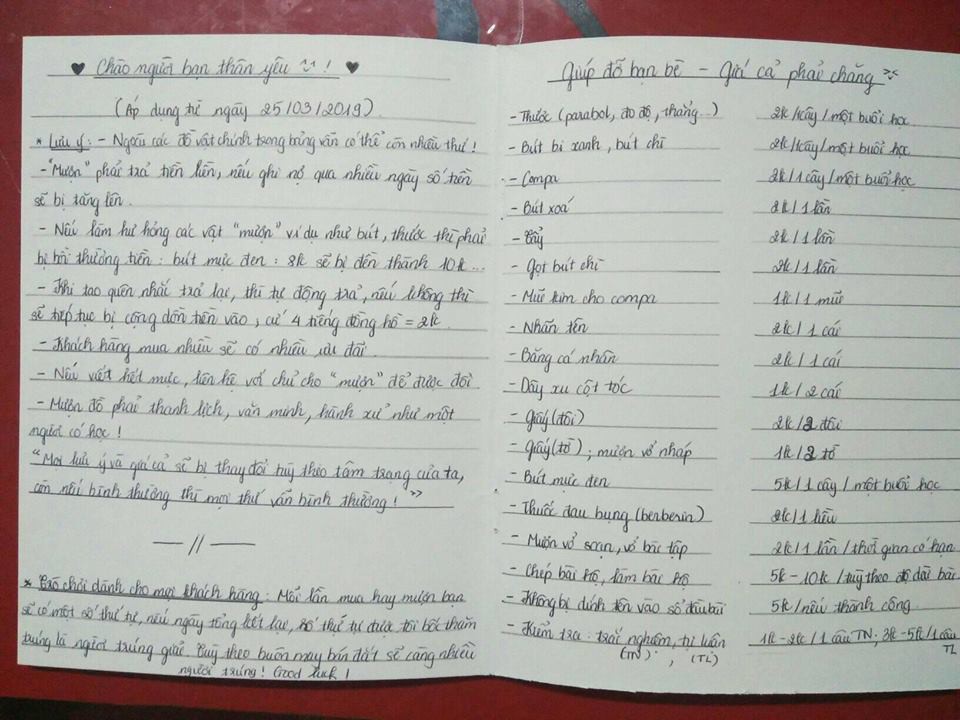 ♥ Chào người bạn thân yêu ! ♥
(Áp dụng từ ngày 25/03/2019)
* Lưu ý: - Ngoài các đồ vật chính trong bảng vẫn có thể còn nhiều thứ!
- "Mượn" phải trả tiền liền, nếu ghi nợ qua nhiều ngày số tiền
sẽ bị tăng lên.
- Nếu làm hư hỏng các vật "mượn" ví dụ như bút, thước thì phải
bị bồi thường tiền: bút mực đen: 8k sẽ bị đền thành 10k...
- Khi tao quên nhắc trả lại, thì tự động trả, nếu không thì
sẽ tiếp tục bị cộng dồn tiền vào, cứ 4 tiếng đồng hồ = 2k.
- Khách hàng mua nhiều sẽ có nhiều ưu đãi.
- Nếu viết hết mực, liên hệ với chủ cho "mượn" để được đổi
- Mượn đồ phải thanh lịch, văn minh, hành xử như một
người có học!
"Mọi lưu ý và giá cả sẽ bị thay đổi tuỳ theo tâm trạng của ta,
còn nếu bình thường thì mọi thứ vẫn bình thường!"
— // —
* Trò chơi dành cho mọi khách hàng: Mỗi lần mua hay mượn bạn
sẽ có một số thứ tự, nếu ngày tổng kết lại, số thứ tự được tôi bốc thăm
trúng là người trúng giải. Tuỳ theo buôn may bán đắt sẽ càng nhiều
người trúng! Good luck!
Giúp đỡ bạn bè - Giá cả phải chăng
- Thước (parabol, đo độ, thẳng...) 2k/cây/một buổi học
- Bút bi xanh, bút chì 2k/cây/một buổi học
- Compa 2k/1 cây/một buổi học
- Bút xoá 2k/1 lần
- Tẩy 2k/1 lần
- Gọt bút chì 2k/1 lần
- Mũi kim cho compa 1k/1 mũi
- Nhãn tên 2k/1 cái
- Băng cá nhân 2k/1 cái
- Dây xu cột tóc 1k/2 cái
- Giấy (đôi) 2k/2 đôi
- Giấy (tờ); mượn vở nháp 1k/2 tờ
- Bút mực đen 5k/1 cây/một buổi học
- Thuốc đau bụng (berberin) 2k/1 liều
- Mượn vở soạn, vở bài tập 2k/1 lần/thời gian có hạn
- Chép bài hộ, làm bài hộ 5k - 10k/tuỳ theo độ dài bài
- Không bị dính tên vào sổ đầu bài 5k/nếu thành công
- Kiểm tra: trắc nghiệm, tự luận 1k - 2k/1 câu TN; 3k - 5k/1 câu
(TN), (TL) TL